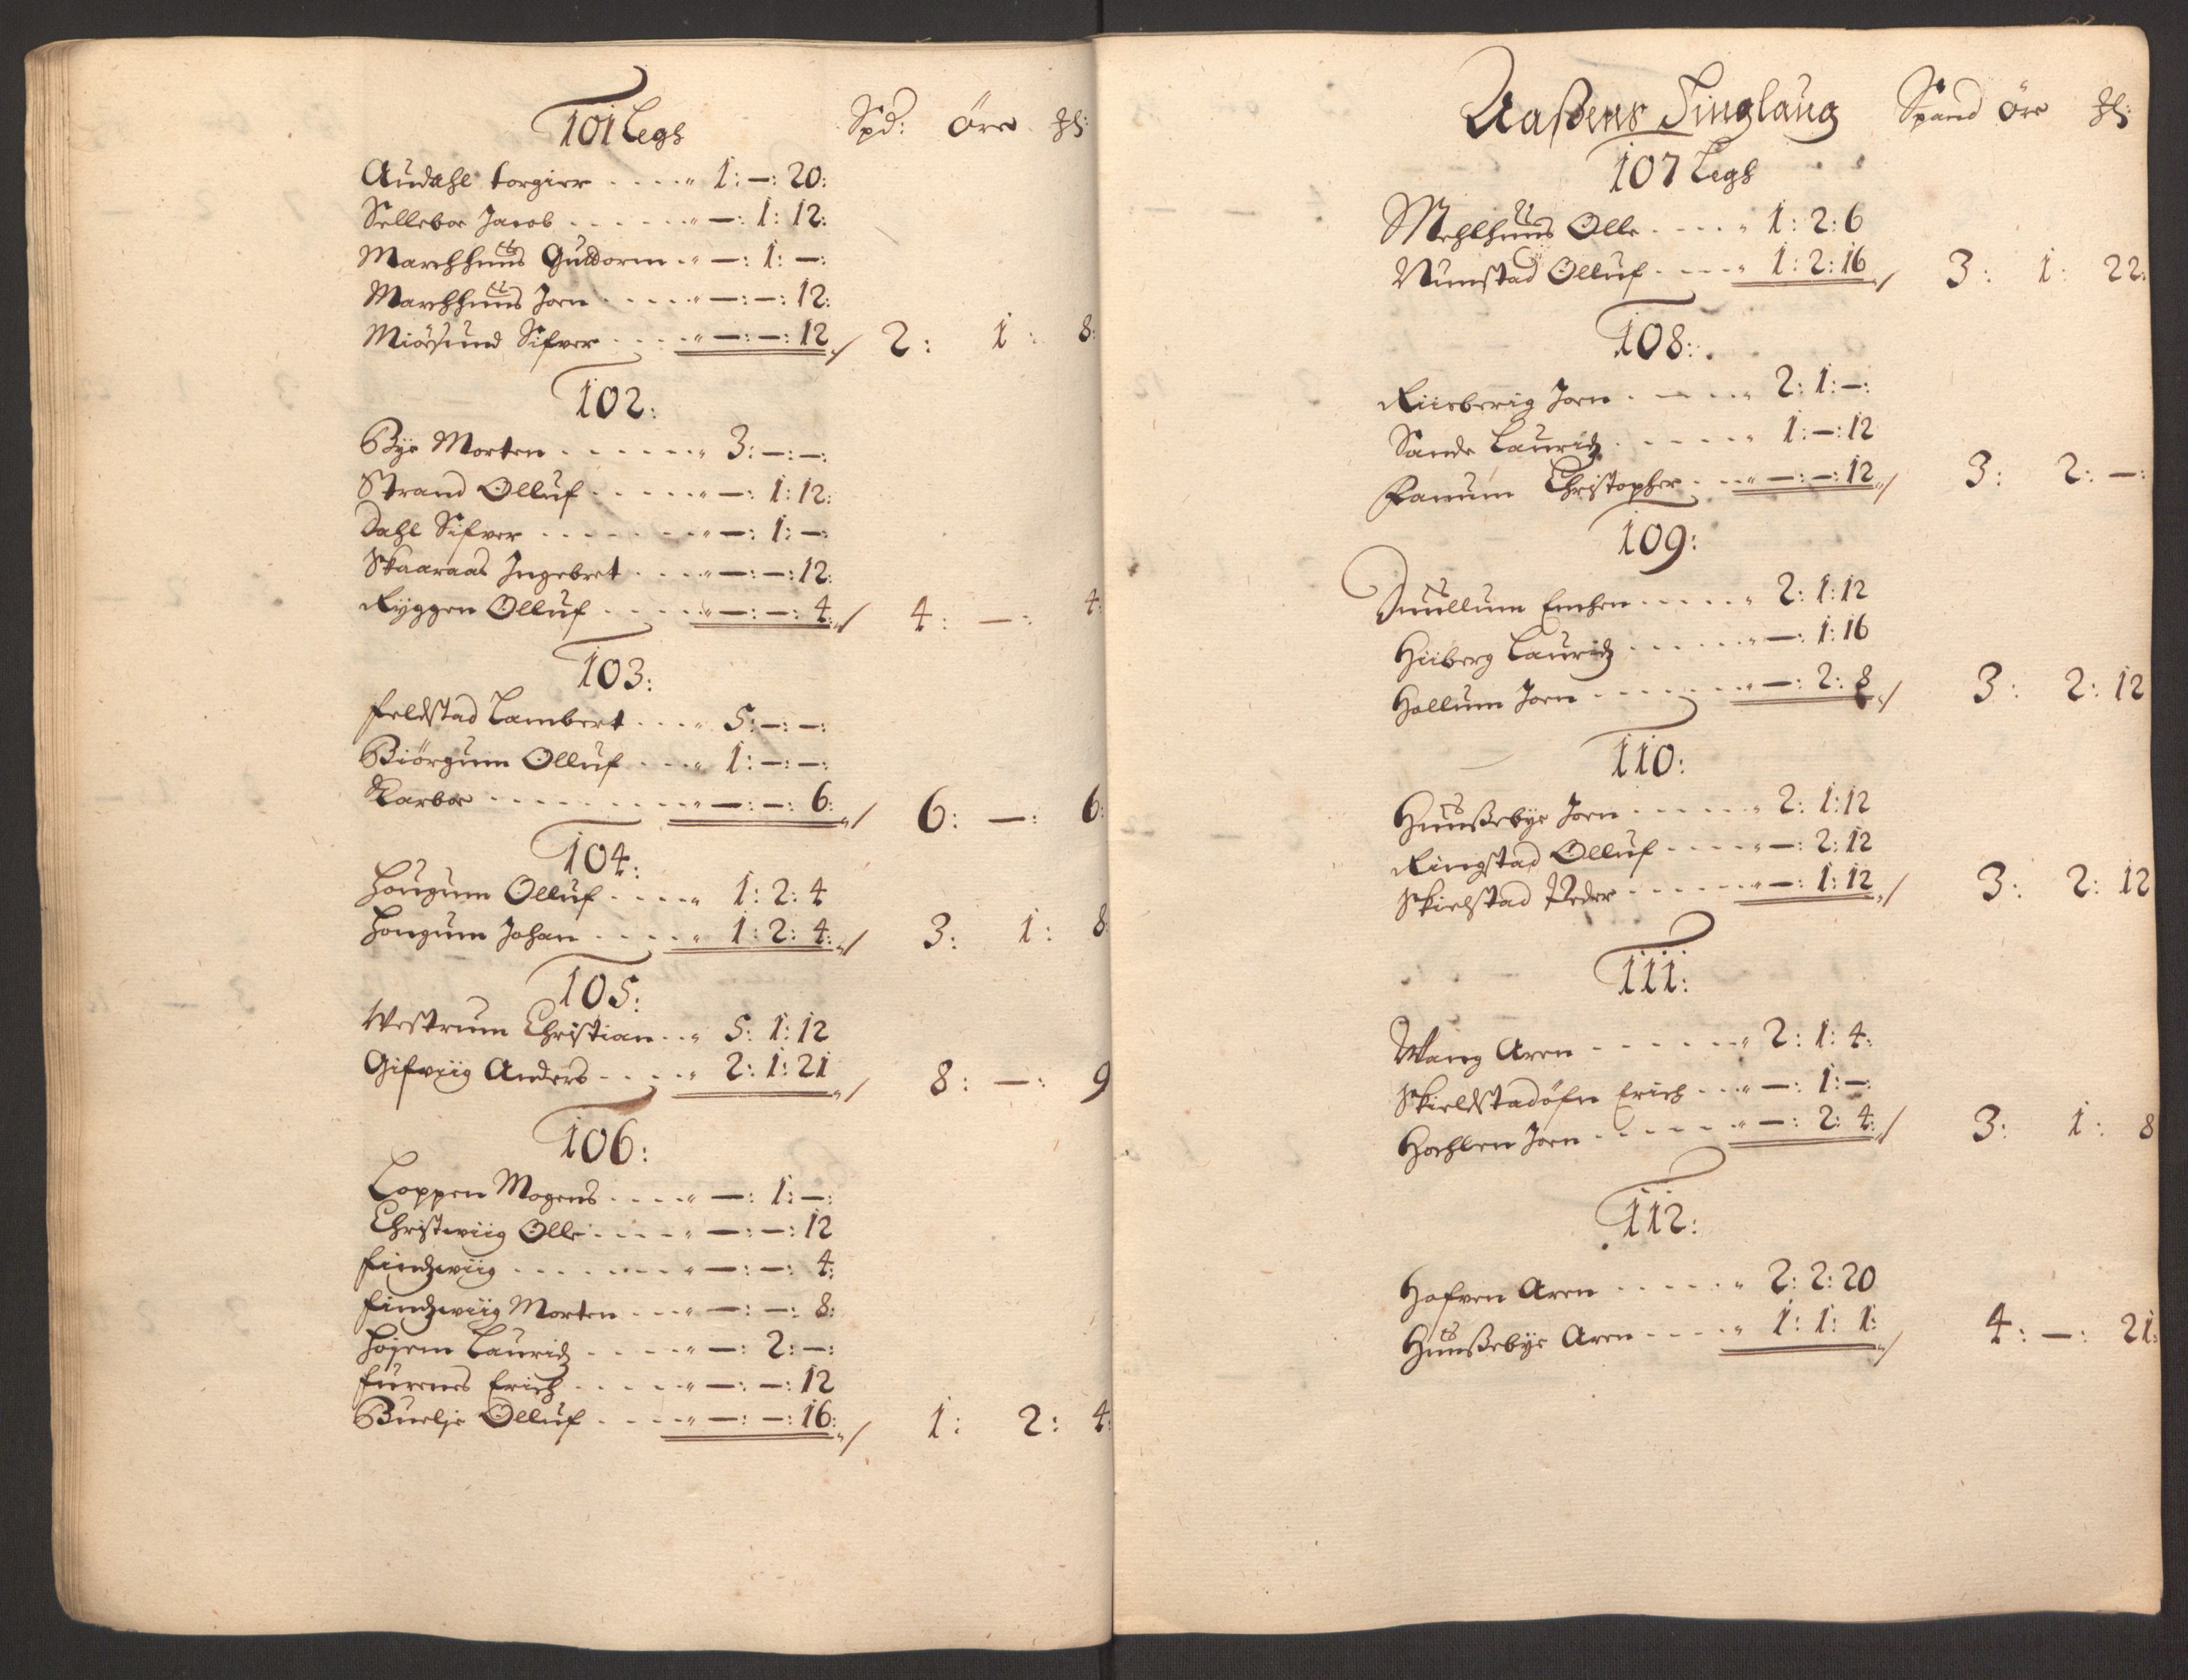 101 Legh Spd: Öre
Audahl torgier .... 1: —: 20:
Selleboe Jacob ...... —: 1: 12:
Marchhuus Guldorm .. —: 1: —:
Marchhuus Joen ..... —: —: 12:
Miösund Sifver .... —: —: 12 2: 1: 8:
102:
Bye Morten ...... 3: —: —:
Strand Olluf ..... —: 1: 12:
Dahl Sifver ....... —: 1: —:
Skaaraas Ingebret .... —: —: 12:
Ryggen Olluf .... —: —: 4: 4: —: 4:
103:
Feldstad Lambert .... 5: —: —:
Biörgum Olluf .... 1: —: —:
Karboe ......... —: —: 6: 6: —: 6:
104:
Hougum Olluf .... 1: 2: 4
Hougum Johan .... 1: 2: 4: 3: 1: 8
105:
Westrum Christian .. 5: 1: 12
Gifwiig Anders .... 2: 1: 21 8: —: 9
106:
Loppen Mogens .... —: 1: —:
Christwiig Olle .... —: —: 12
Findzwiig ....... —: —: 4:
Findzwiig Morten ... —: —: 8:
Hojem Lauridz ..... —: 2: —:
Furenes Erich ..... —: —: 12
Buelje Olluf .... —: —: 16: 1: 2: 4:
Aaßens Tinglaug Spand Öre
107 Legh
Mehlhuus Olle .... 1: 2: 6
Nunstad Olluf .... 1: 2: 16 3: 1: 22:
108:
Riieberig Joen .... 2: 1: —:
Sande Lauridz ..... 1: —: 12
Fanum Christopher ... —: —: 12 3: 2: —:
109:
Duullum Enchen ..... 2: 1: 12
Hiiberg Lauridz ..... —: 1: 16
Hallum Joen ....... —: 2: 8 3: 2: 12
110:
Huußebye Joen ..... 2: 1: 12
Ringstad Olluf .... —: 2: 12
Skielstad Peder ...... —: 1: 12 3: 2: 12
111:
Wang Aren ...... 2: 1: 4:
Skieldstadöfn Erich ... —: 1: —:
Hoehlen Joen ...... —: 2: 4: 3: 1: 8
112:
Hafven Aren ..... 2: 2: 20
Huußebye Aren .... 1: 1: 1: 4: —: 21: